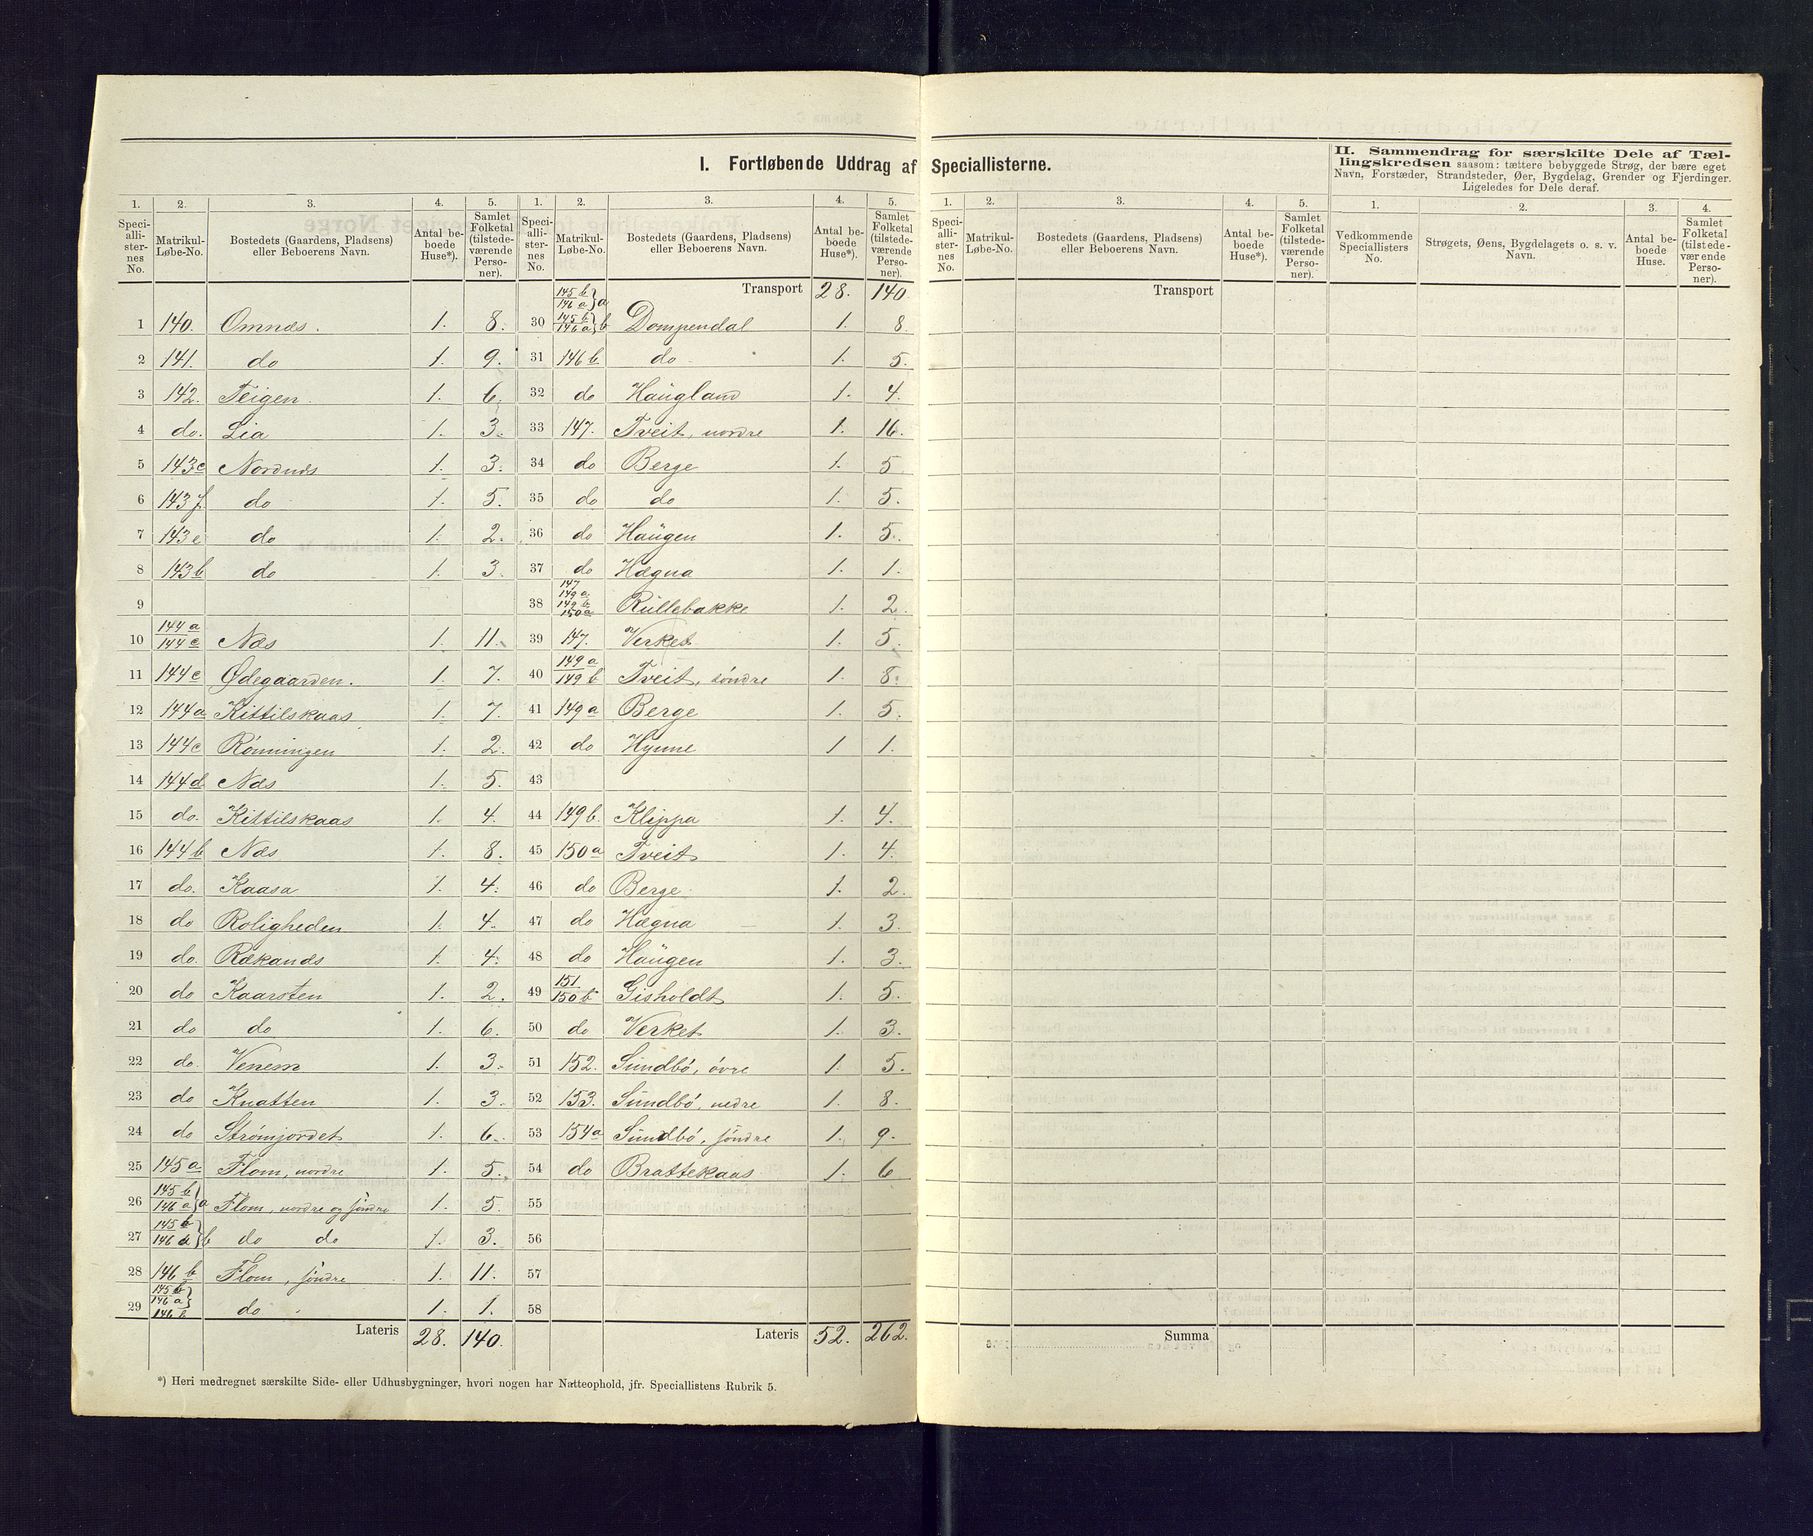 I. Fortløbende Uddrag af Speciallisterne.
II. Sammendrag for særskilte Dele af Tællingskredsen saasom: tættere bebyggede Strøg, der bære eget
Navn, Forstæder, Strandsteder, Øer, Bygdelag, Grender og Fjerdinger.
Ligeledes for Dele deraf.
1. 2. 3. 4. 5.
Speciallisternes No. Matrikul-Løbe-No. Bostedets (Gaardens, Pladsens) eller Beboerens Navn. Antal beboede Huse*). Samlet Folketal (tilstedeværende Personer).
1 140. Omnæs. 1. 8.
2 141. do 1. 9.
3 142. Teigen. 1. 6.
4 do. Lia 1. 3.
5 143c Nordnæs 1. 3.
6 143f do 1. 5.
7 143e do 1. 2.
8 143b do 1. 3.
9
10 144a 144c Næs 1. 11.
11 144c Ødegaarden. 1. 7.
12 144a Kittilskaas 1. 7.
13 144c Rønningen 1. 2.
14 144d Næs 1. 5.
15 do. Kittilskaas 1. 4.
16 144b Næs 1. 8.
17 do. Kaasa 1. 4.
18 do Roligheden 1. 4.
19 do. Rækands 1. 4.
20 do Kaarsten 1. 2.
21 do do 1. 6.
22 do. Venem 1. 3.
23 do Knatten 1. 3.
24 do Strømjordet 1. 6.
25 145a Flom, nordre 1. 5.
26 145b 146a } a Flom, nordre og søndre 1. 5.
27 145b 146a } b do do 1. 3.
28 146b Flom, søndre 1. 11.
29 145b 146a } 146b do 1. 1.
Lateris 28. 140.
1. 2. 3. 4. 5.
Speciallisternes No. Matrikul-Løbe-No. Bostedets (Gaardens, Pladsens) eller Beboerens Navn. Antal beboede Huse*). Samlet Folketal (tilstedeværende Personer).
Transport 28. 140.
30 145b 146a } a 145b 146a } b Dompendal 1. 8.
31 146b do 1. 5.
32 do Haügland 1. 4.
33 147. Tveit, nordre 1. 16.
34 do Berge 1. 5
35 do do 1. 5.
36 do Haügen 1. 5.
37 do Hægna 1. 1.
38 147 149a 149b 150a Rüllebakke 1. 2.
39 147. Verket 1. 5.
40 149a 149b Tveit, søndre 1. 8.
41 149a Berge 1. 5.
42 do Hynne 1 1.
43
44 149b. Klippa 1. 4.
45 150a Tveit 1. 4.
46 do Berge. 1. 2.
47 do Hægna 1. 3.
48 do Haügen 1. 3.
49 151 150b Gisholdt 1. 5.
50 do Verket 1. 3.
51 152. Sundbø, øvre 1. 5.
52 153. Sündbø, nedre 1. 8.
53 154a Sündbø, søndre 1. 9.
54 do Brattekaas 1. 6
55
56
57
58
Lateris 52. 262.
1. 2. 3. 4. 5.
Speciallisternes No. Matrikul-Løbe-No. Bostedets (Gaardens, Pladsens) eller Beboerens Navn. Antal beboede Huse*). Samlet Folketal (tilstedeværende Personer).
Transport
Summa
1. 2. 3. 4.
Vedkommende Speciallisters No. Strøgets, Øens, Bygdelagets o. s. v. Navn. Antal beboede Huse. Samlet Folketal (tilstedeværende Personer).
*) Heri medregnet særskilte Side- eller Udhusbygninger, hvori nogen har Natteophold, jfr. Speciallistens Rubrik 5.